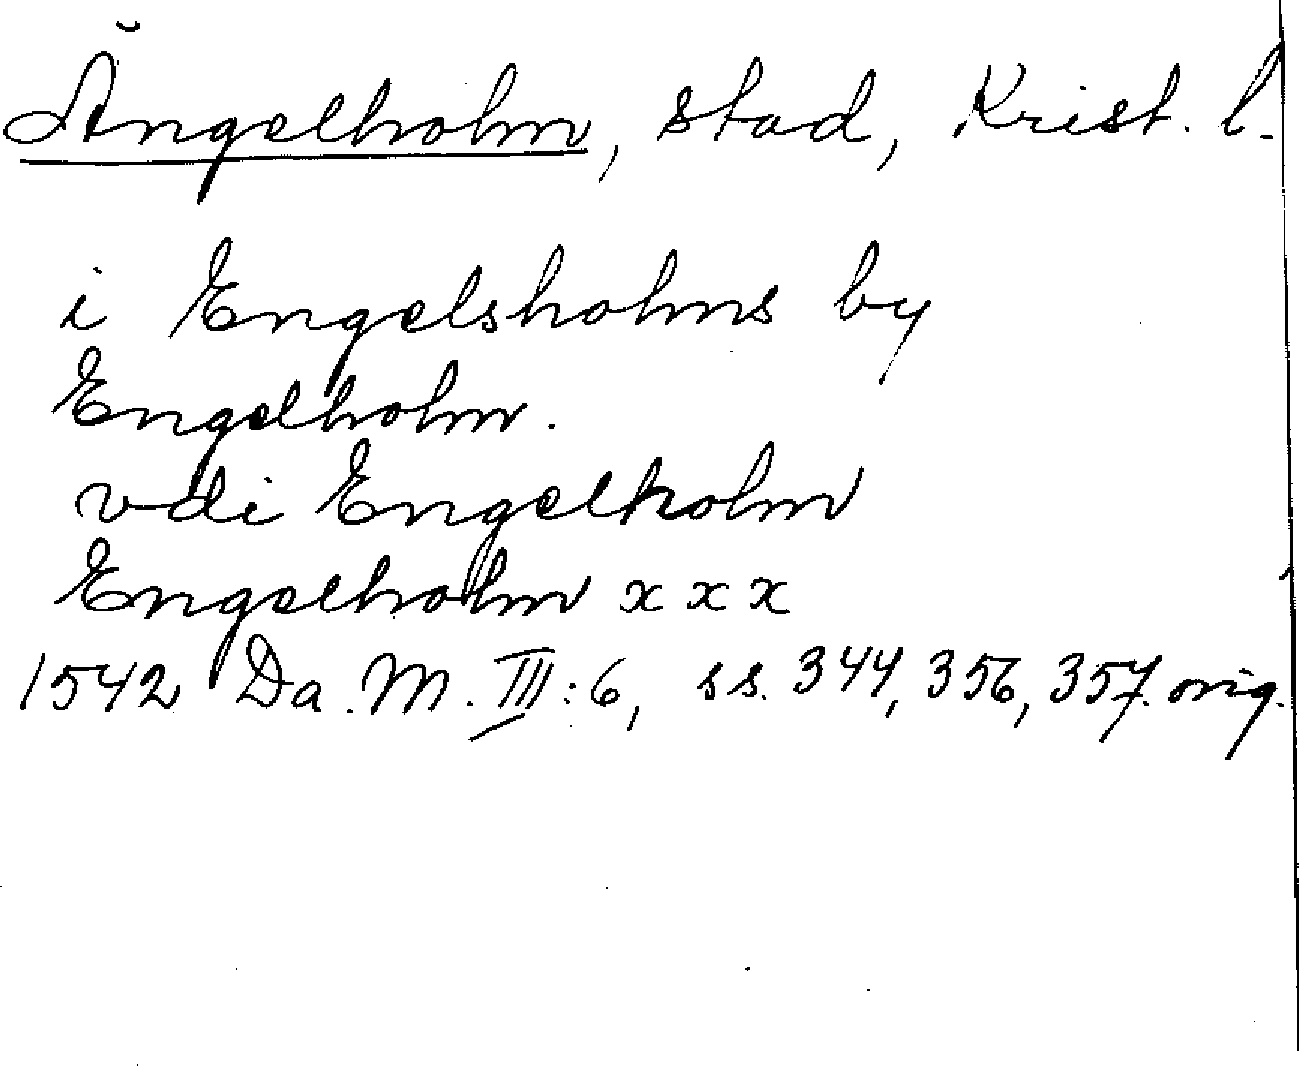 Ängelholm, stad, Krist. l.
i Engelsholms by
Engelholm.
vdi Engelholm
Engelholm x x x
1542 Da. M. III:6, ss. 344, 356, 357. orig.